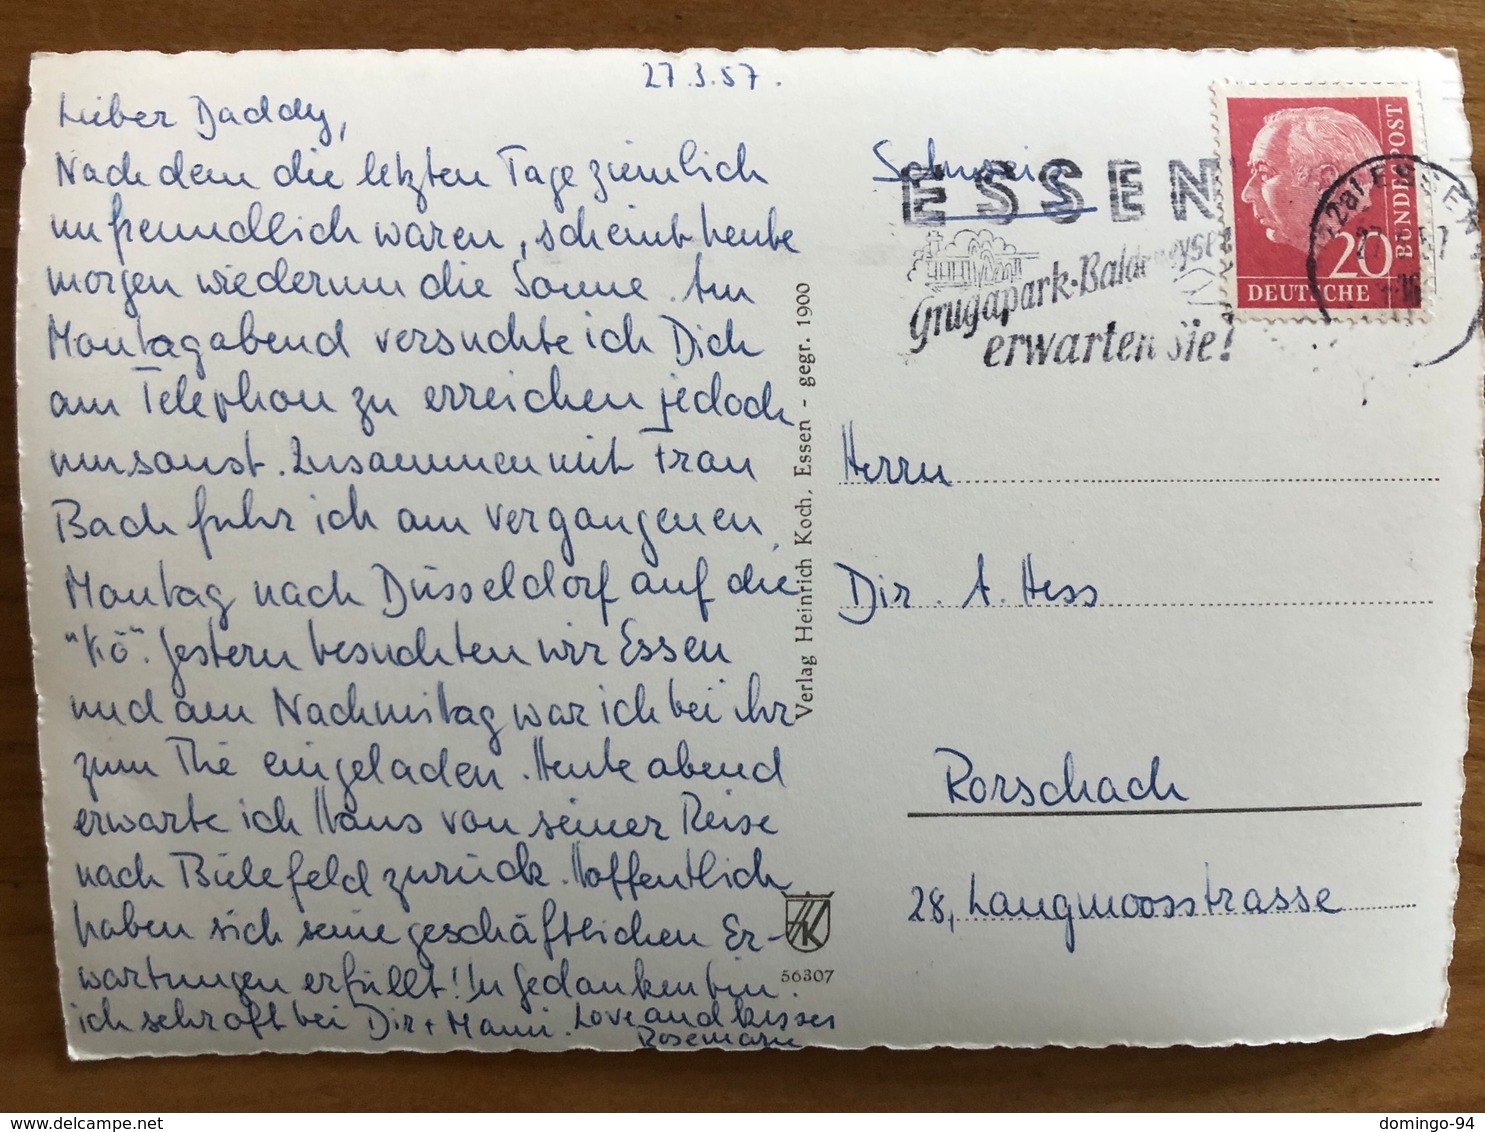 27.3.57.
Lieber Daddy,
Nachdem die letzten Tage ziemlich
unfreundlich waren, scheint heute
morgen wiederum die Sonne. Am
Montagabend versuchte ich Dich
am Telephon zu erreichen jedoch
umsonst. Zusammen mit Frau
Bach fuhr ich am vergangenen
Montag nach Düsseldorf auf die
"Kö". Gestern besuchten wir Essen
und am Nachmittag war ich bei ihr
zum The eingeladen. Heute abend
erwarte ich Hans von seiner Reise
nach Bielefeld zurück. Hoffentlich
haben sich seine geschäftlichen Er-
wartungen erfüllt! In Gedanken bin
ich sehr oft bei Dir + Mami. Love and kisses
Rosemarie
Verlag Heinrich Koch, Essen - gegr. 1900
HK
56307
Schweiz
ESSEN
Grugapark·Baldeneysee
erwarten Sie!
20
DEUTSCHE
BUNDESPOST
ESSEN
27
57
Herrn
Dir. A. Hess
Rorschach
28, Langmoosstrasse
delcampe.net
domingo-94